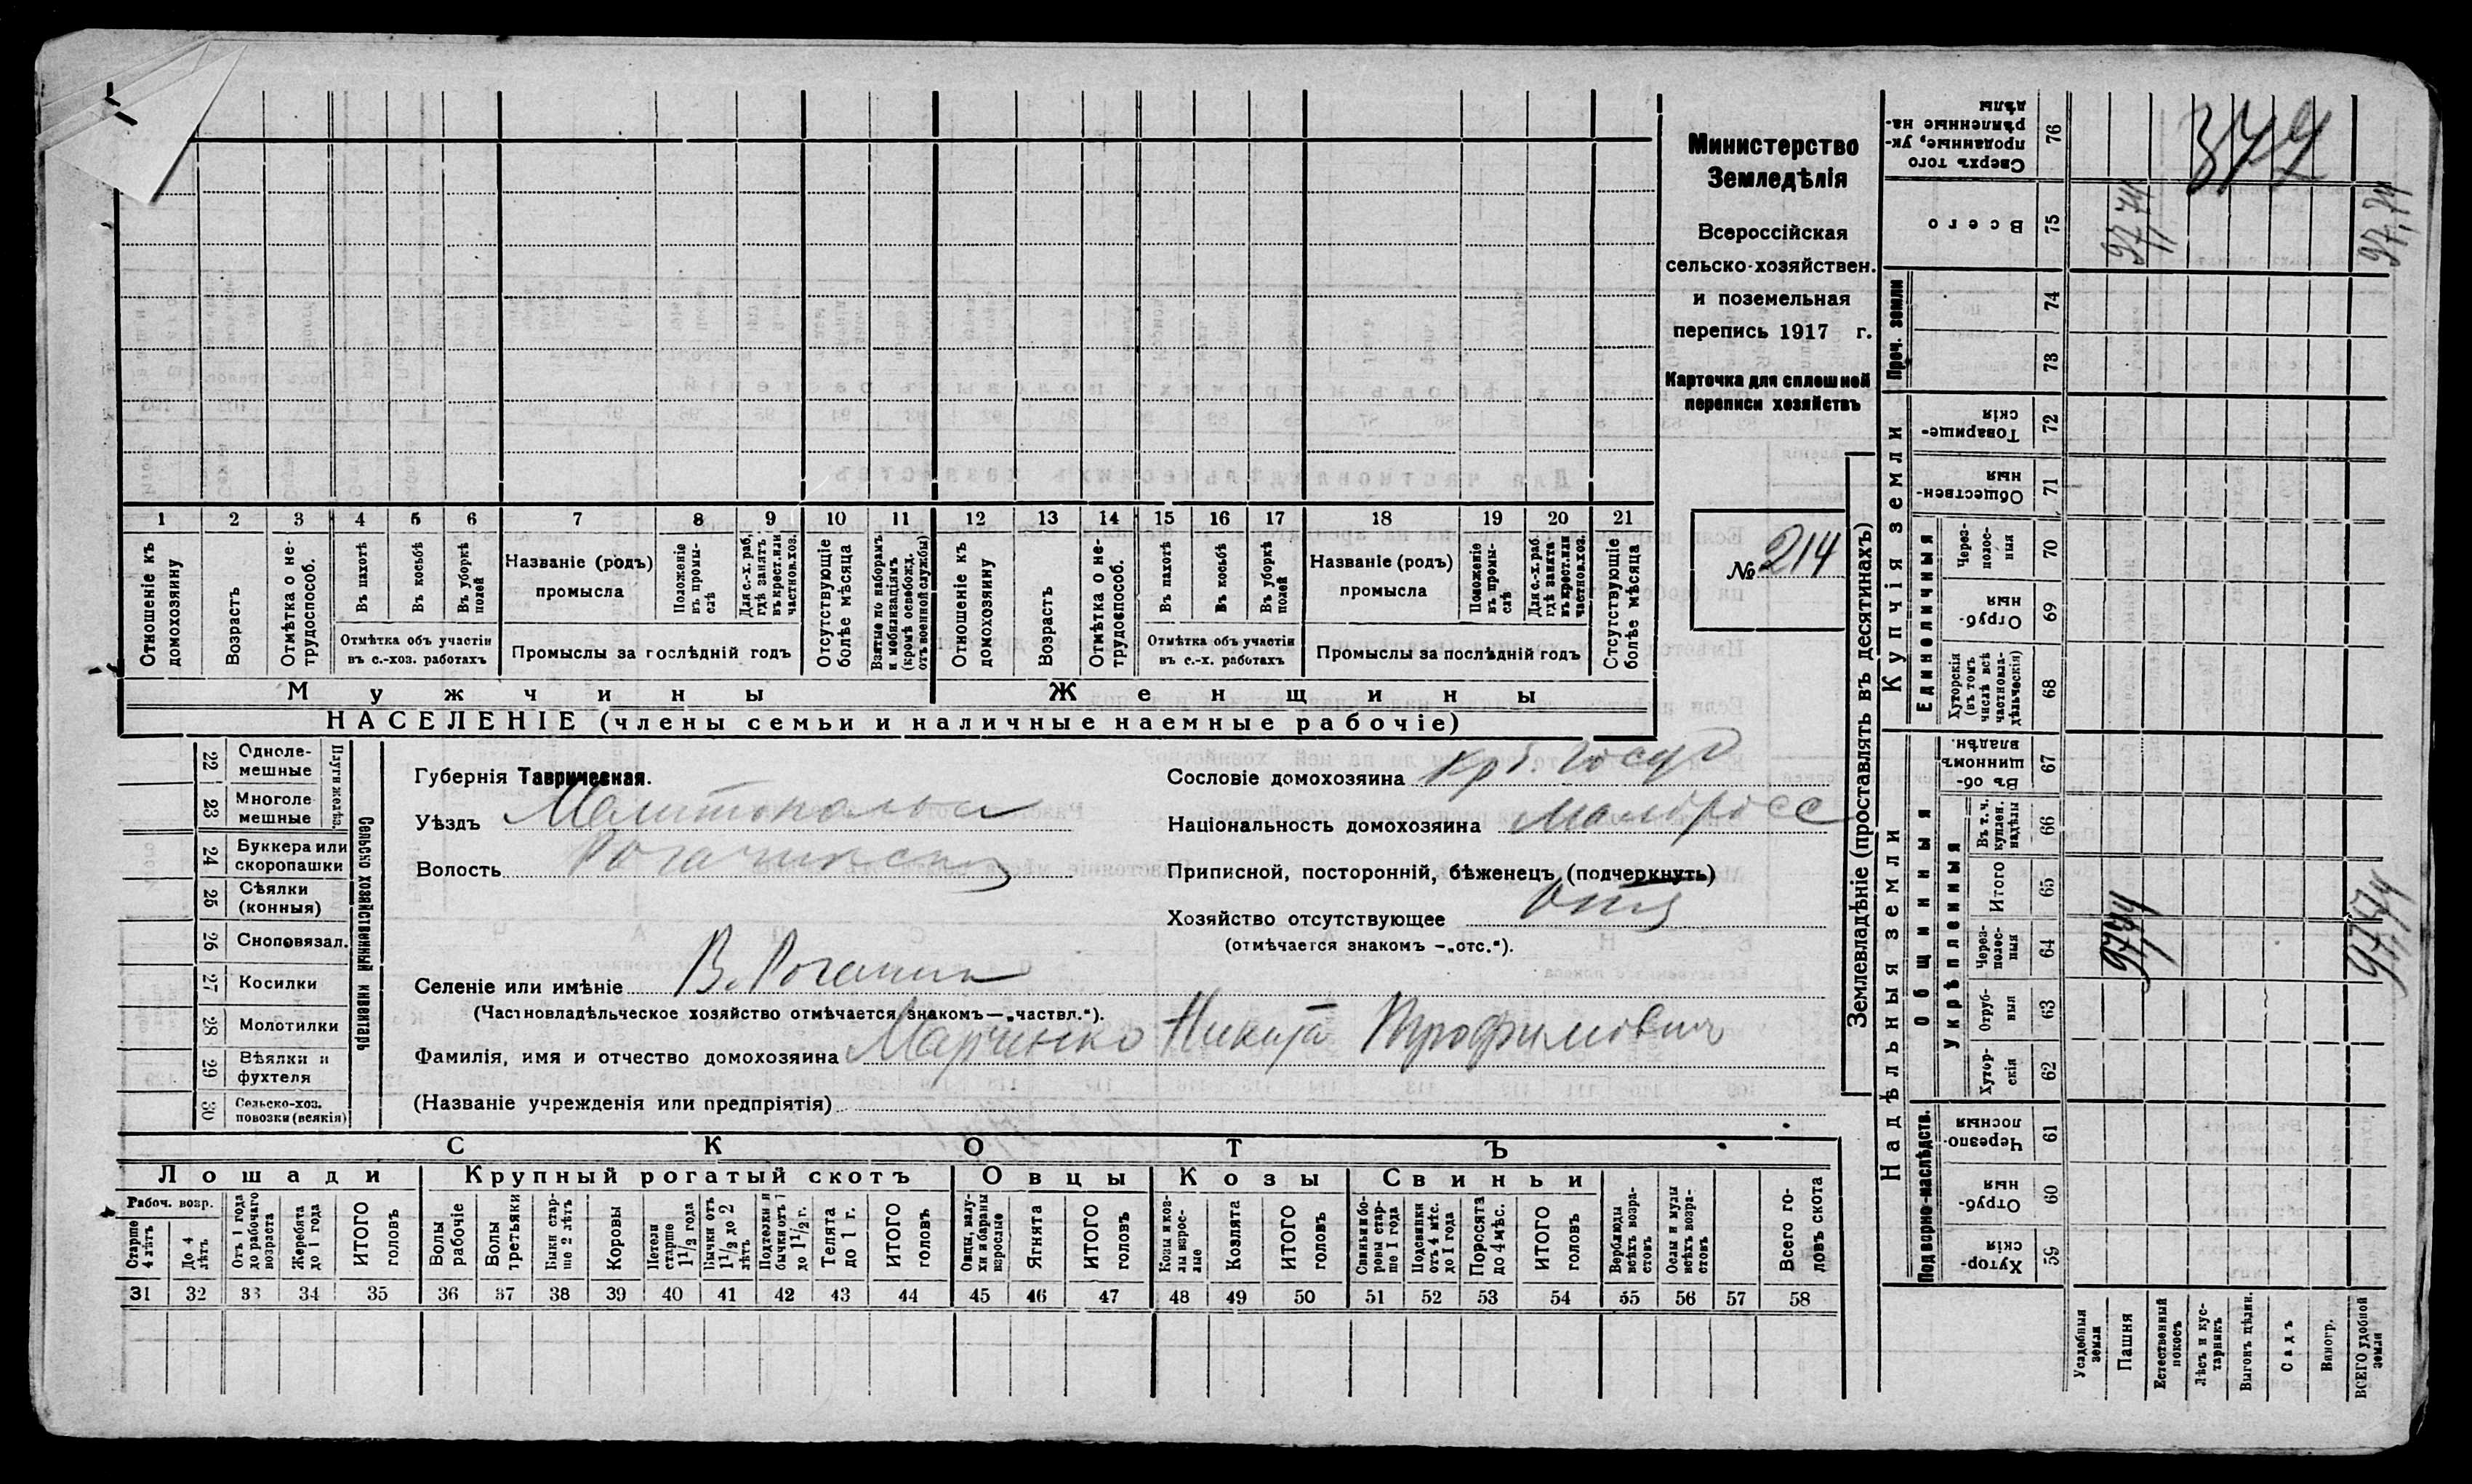 Министерство
Земледѣлія
Всероссійская
сельско-хозяйствен.
и поземельная
перепись 1917 г.
Карточка для сплошной
переписи хозяйствъ
№ 214
1 2 3 4 5 6 7 8 9 10 11 12 13 14 15 16 17 18 19 20 21
Отношеніе къ домохозяину
Возрастъ
Отмѣтка о не-трудоспособ.
Въ пахотѣ
Въ косьбѣ
Въ уборкѣ полей
Отмѣтка объ участіи
въ с.-хоз. работахъ
Названіе (родъ)
промысла
Положеніе въ промы-слѣ
Для с.-х. раб, гдѣ занятъ въ крест. или частнов. хоз.
Промыслы за послѣдній годъ
Отсутствующіе болѣе мѣсяца
Взятые по наборамъ и мобилизаціямъ (кромѣ освобожд. отъ военной службы)
Отношеніе къ домохозяину
Возрастъ
Отмѣтка о не-трудоспособ.
Въ пахотѣ
Въ косьбѣ
Въ уборкѣ полей
Отмѣтка объ участіи
въ с.-х. работахъ
Названіе (родъ)
промысла
Положеніе въ промы-слѣ
Для с.-х. раб. гдѣ занята въ крест. или частнов. хоз.
Промыслы за послѣдній годъ
Отсутствующіе болѣе мѣсяца
Мужчины
Женщины
НАСЕЛЕНІЕ (члены семьи и наличные наемные рабочіе)
22 Одноле-
мешные
23 Многоле
мешные
Плуги желѣз.
24 Буккера или
скоропашки
25 Сѣялки
(конныя)
26 Сноповязал.
27 Косилки
28 Молотилки
29 Вѣялки и
фухтеля
30 Сельско-хоз.
повозки (всякія)
Сельско хозяйственный инвентарь
Губернія Таврическая.
Уѣздъ
Волость
Селеніе или имѣніе В. Рогачик
(Частновладѣльческое хозяйство отмѣчается знакомъ—„частвл.“).
Фамилія, имя и отчество домохозяина Марченко Никита Трофимович
(Названіе учрежденія или предпріятія)
Сословіе домохозяина
Національность домохозяина Малоросс
Приписной, посторонній, бѣженец (подчеркнуть)
Хозяйство отсутствующее
(отмѣчается знакомъ —„отс.“).
СКОТЪ
Лошади
Крупный рогатый скотъ
Овцы
Козы
Свиньи
Рабоч. возр.
Старше 4 лѣтъ
До 4 лѣтъ
Отъ 1 года до рабочаго возраста
Жеребята до 1 года
ИТОГО головъ
Волы рабочіе
Волы третьяки
Быки стар-ше 2 лѣтъ
Коровы
Нетели старше 1 1/2 года
Бычки отъ 1 1/2 до 2 лѣтъ
Подтелки и бычки отъ 1 до 1 1/2 г.
Телята до 1 г.
ИТОГО головъ
Овцы, валу-хи и бараны взрослые
Ягнята
ИТОГО головъ
Козы и коз-лы взрос-лые
Козлята
ИТОГО головъ
Свиньи и бо-ровы стар-ше 1 года
Подсвинки отъ 4 мѣс. до 1 года
Поросята до 4 мѣс.
ИТОГО головъ
Верблюды всѣхъ возра-стовъ
Ослы и мулы всѣхъ возра-стовъ
Всего го-ловъ скота
31 32 33 34 35 36 37 38 39 40 41 42 43 44 45 46 47 48 49 50 51 52 53 54 55 56 57 58
Землевладѣніе (проставлять въ десятинахъ)
Купчія земли
Надѣльныя земли
Проч. земли
Сверхъ того проданные, ук-рѣпленные на-дѣлы 76
Всего 75
74
73
Товарище-скія 72
Обществен-ныя 71
Единоличныя
Через-полос-ныя 70
Отруб-ныя 69
Хуторскія (въ томъ числѣ всѣ частновла-дѣльческія) 68
Общинныя
Въ об-щинномъ владѣн. 67
Укрѣпленныя
Въ т. ч. куплен. надѣлы 66
Итого 65
Через-полос-ныя 64
Отруб-ныя 63
Хутор-скія 62
Подворно-наслѣдств.
Черезпо-лосныя 61
Отруб-ныя 60
Хутор-скія 59
Усадебныя земли
Пашня
Естественный покосъ
Лѣсъ и кус-тарникъ
Выгонъ цѣлин.
Садъ
Виногр.
ВСЕГО удобной земли